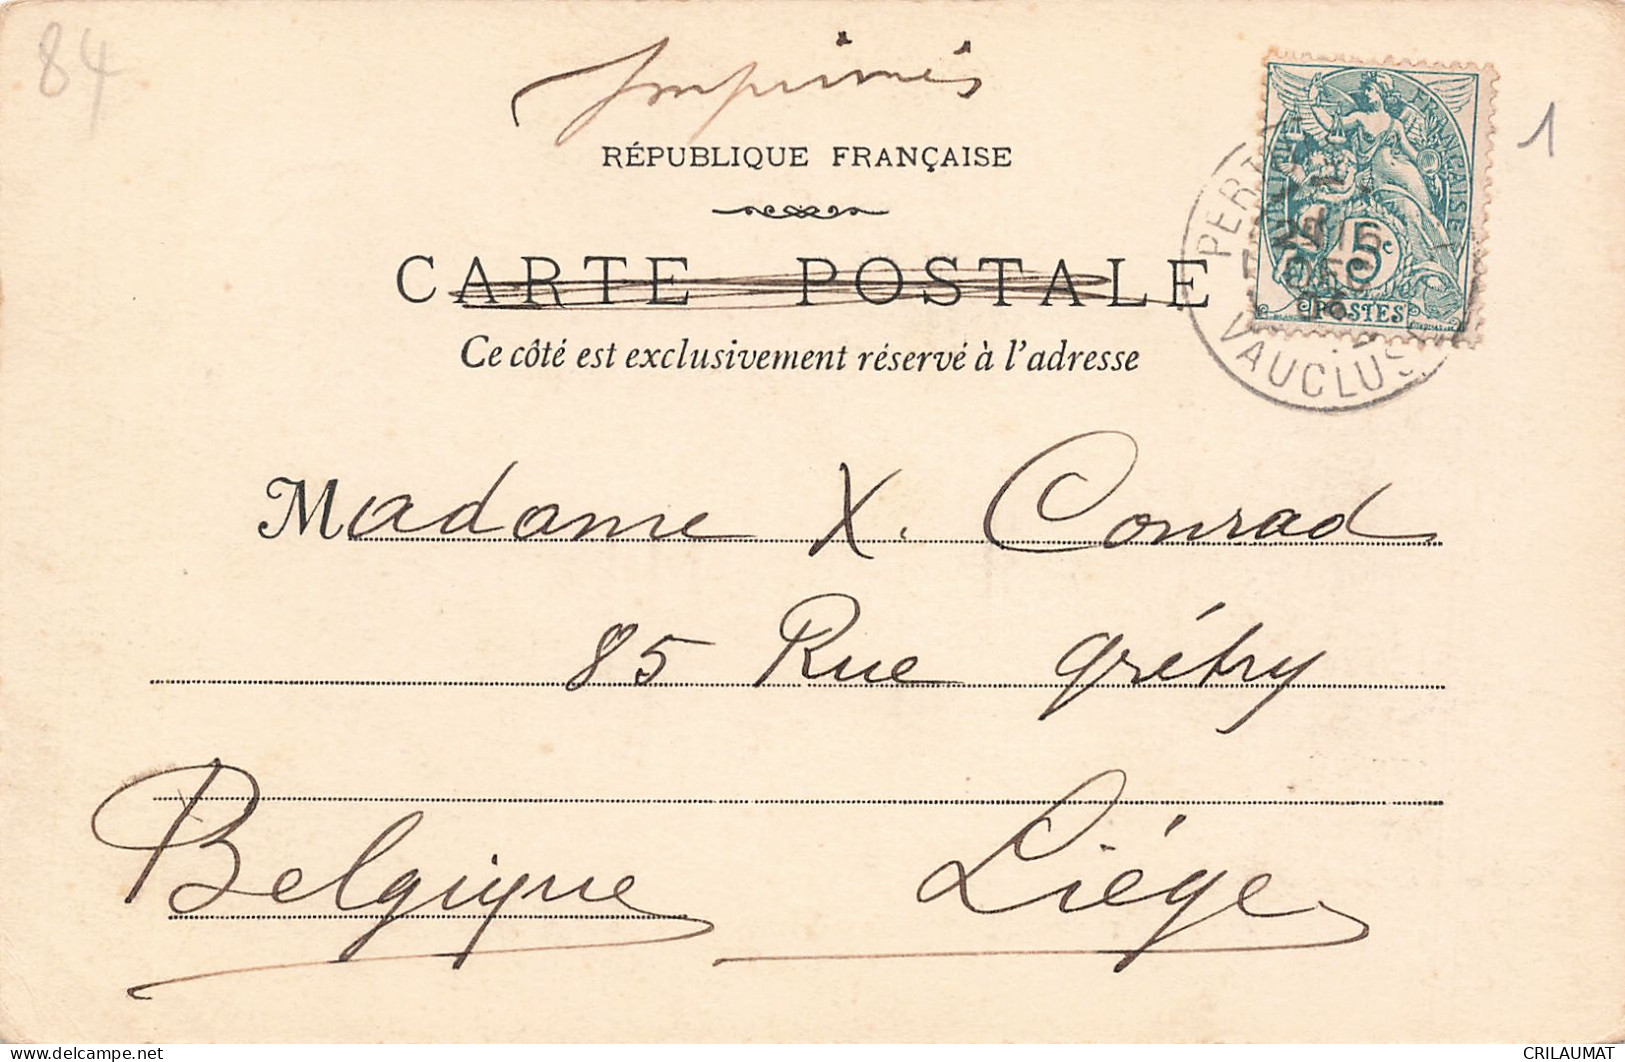 84
Imprimés
1
RÉPUBLIQUE FRANÇAISE
CARTE POSTALE
Ce côté est exclusivement réservé à l'adresse
FRANÇAISE
5c
POSTES
15
DEC
VAUCLUS
Madame X. Conrad
85 Rue Grétry
Belgique Liége
CRILAUMAT
www.delcampe.net